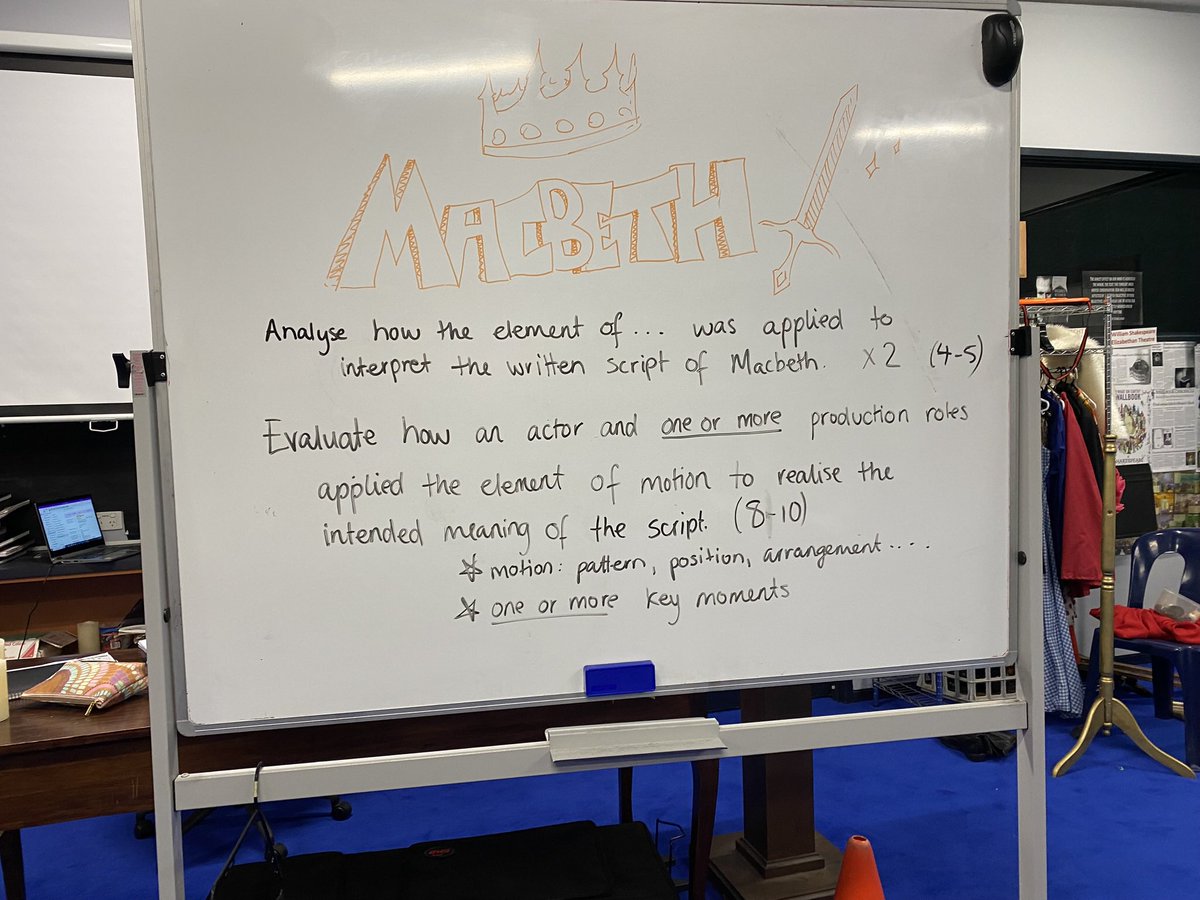 MACBETH
Analyse how the element of... was applied to
interpret the written script of Macbeth. x2 (4-5)
Evaluate how an actor and one or more production roles
applied the element of motion to realise the
intended meaning of the script. (8-10)
☆ motion: pattern, position, arrangement....
☆ one or more key moments
William Shakespeare
Elizabethan Theatre